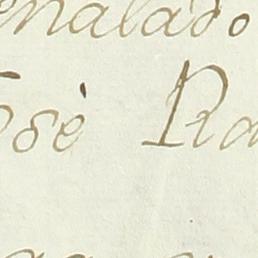 enalado.
osè Ra